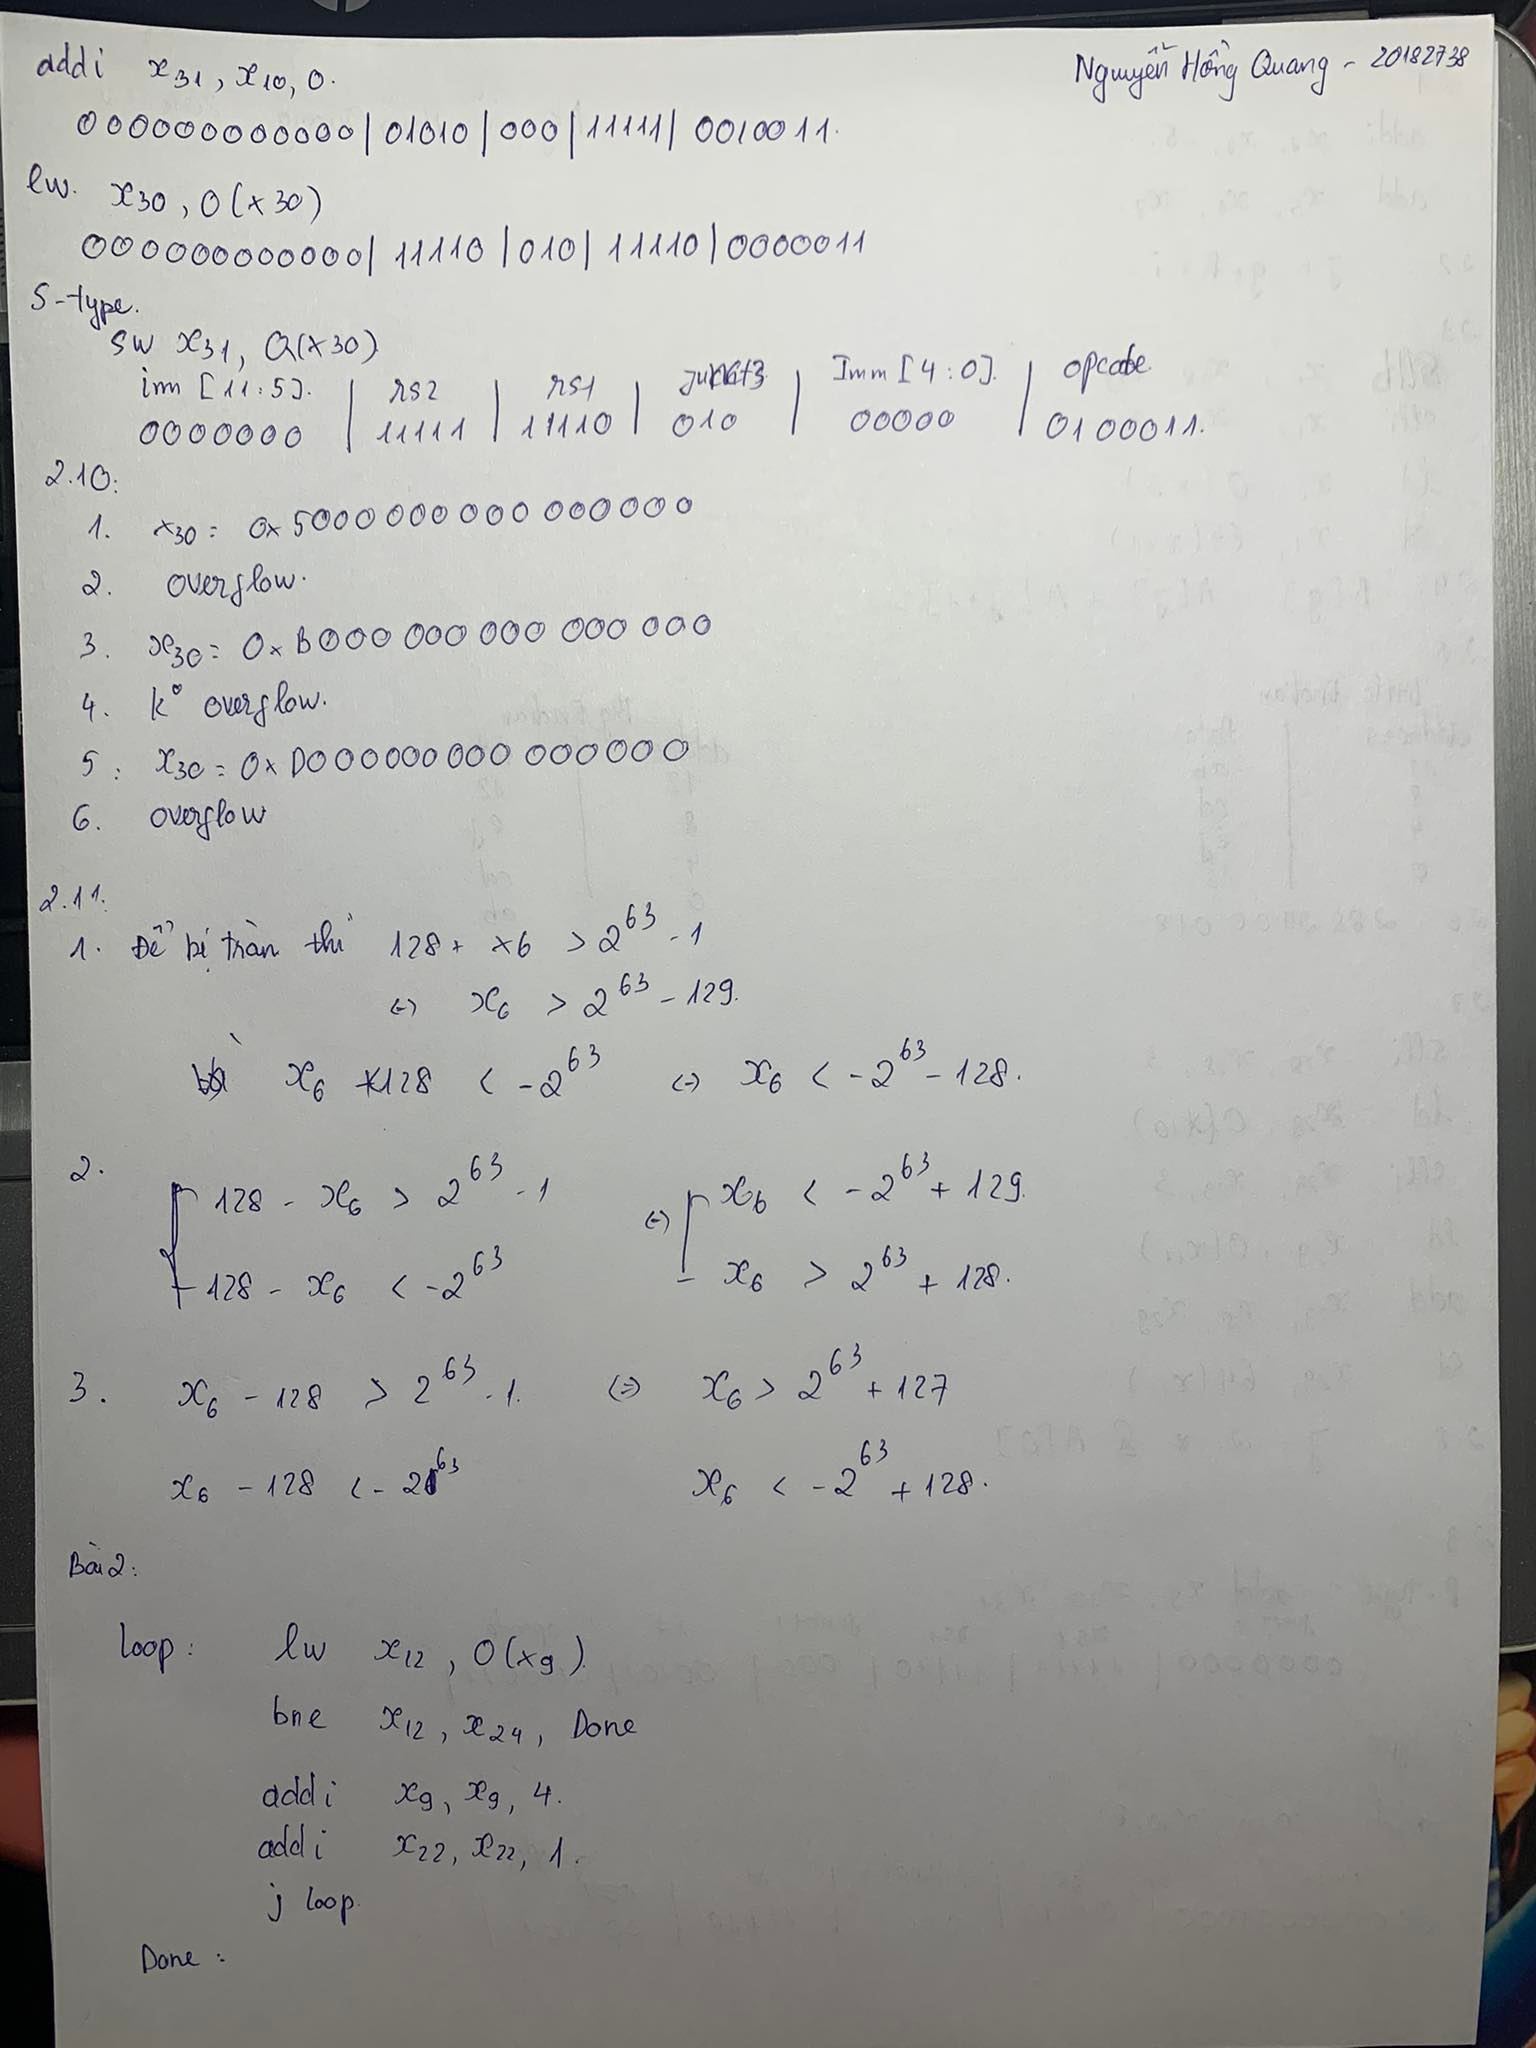 Nguyễn Hồng Quang - 20182738
addi x31, x10, 0.
000000000000 | 01010 | 000 | 11111 | 0010011.
lw. x30, 0(x30)
000000000000 | 11110 | 010 | 11110 | 0000011
S-type.
sw x31, 0(x30)
imm [11:5]. | rs2 | rs1 | funct3 | Imm [4:0]. | opcode.
0000000 | 11111 | 11110 | 010 | 00000 | 0100011.
2.10:
1. x30 = 0x 5000 000 000 000000
2. overflow.
3. x30 = 0x B000 000 000 000 000
4. k° overflow.
5: x30 = 0x D000000000 000000
6. overflow
2.11.
1. Để bị tràn thì 128 + x6 > 2^63 - 1
<=> x6 > 2^63 - 129.
x6 + 128 < -2^63 <=> x6 < -2^63 - 128.
2. [ 128 - x6 > 2^63 - 1 <=> [ x6 < -2^63 + 129.
128 - x6 < -2^63 x6 > 2^63 + 128.
3. x6 - 128 > 2^63 - 1. <=> x6 > 2^63 + 127
x6 - 128 < -2^63 x6 < -2^63 + 128.
Bài 2:
loop: lw x12, 0(x9).
bne x12, x24, Done
addi x9, x9, 4.
addi x22, x22, 1.
j loop
Done: